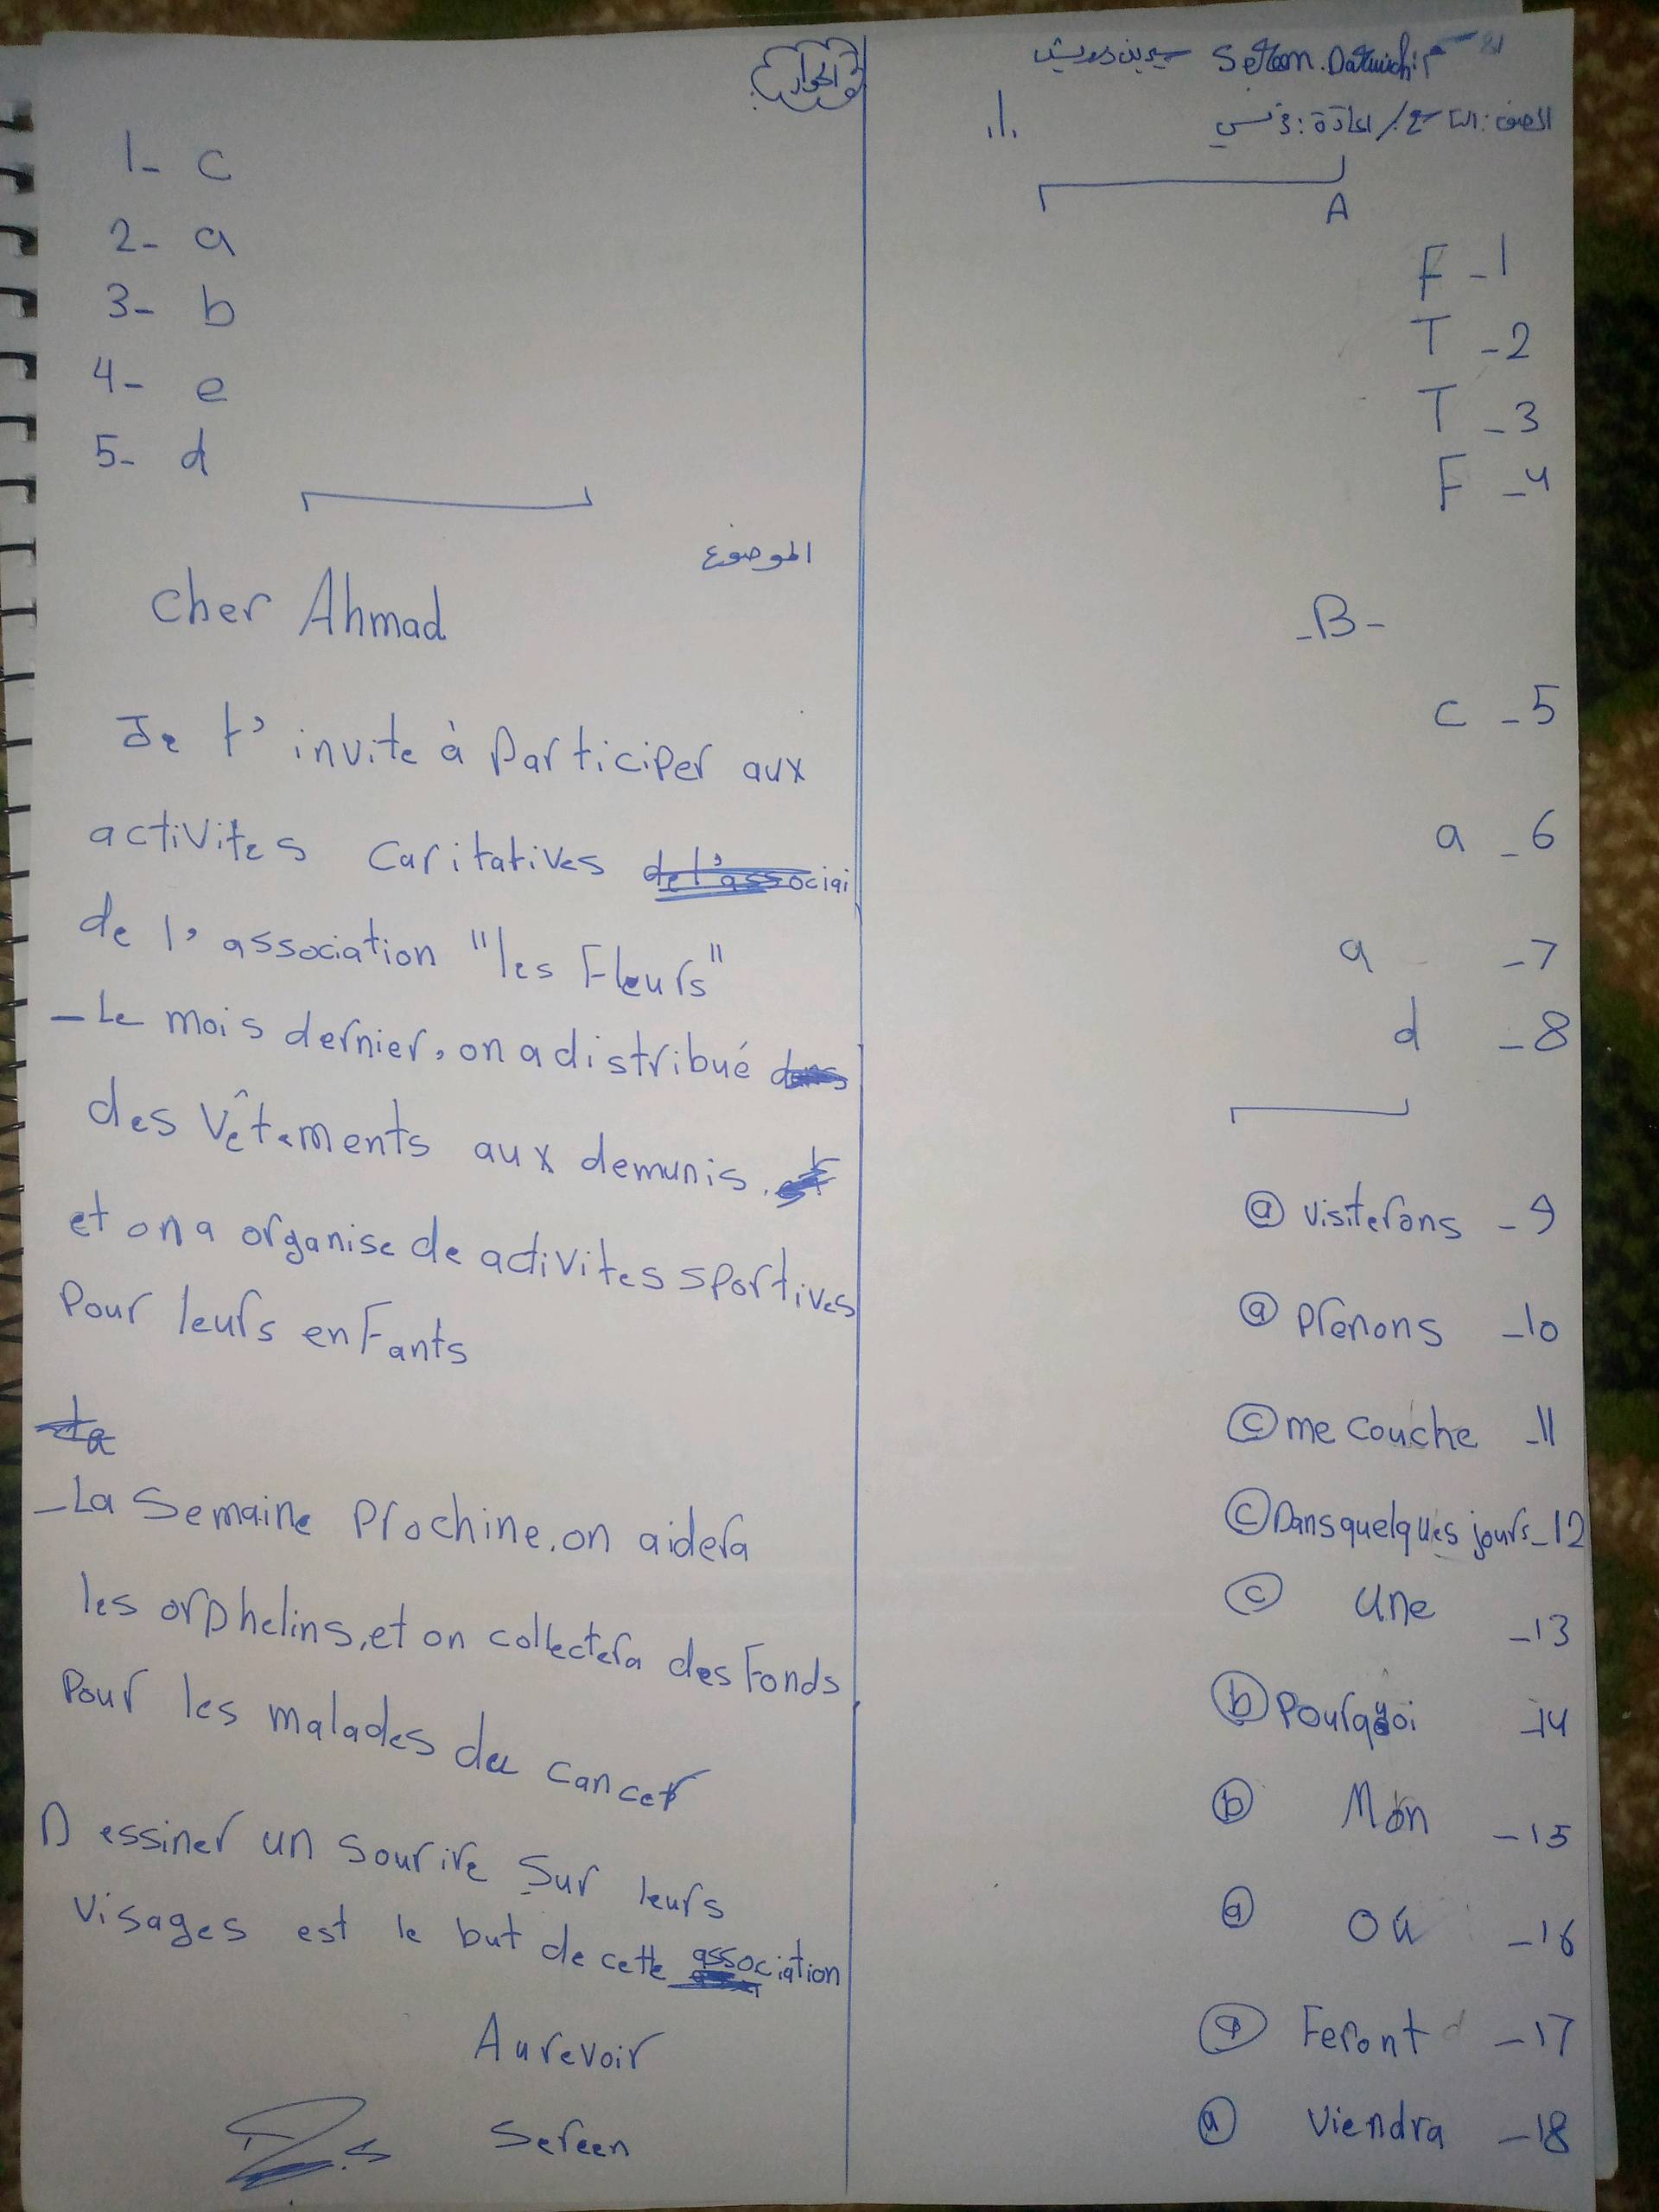 سيرين درويش Sereen.Darwich
الصف: التاسع / المادة: فرنسي
A
F - 1
T - 2
T - 3
F - 4
- B -
c - 5
a - 6
a - 7
d - 8
ⓐ visiterons - 9
ⓐ prenons - 10
ⓒ me couche - 11
ⓒ Dans quelques jours - 12
ⓒ une - 13
ⓑ Pourquoi - 14
ⓑ Mon - 15
ⓐ Où - 16
ⓐ Feront - 17
ⓐ Viendra - 18
الحوار
1- c
2- a
3- b
4- e
5- d
الموضوع
cher Ahmad
Je t'invite à Participer aux
activites caritatives
de l'association "les Fleurs"
- Le mois dernier, on a distribué
des vêtements aux demunis.
et on a organise de activites sportives
Pour leurs enFants
- La Semaine Prochine, on aidera
les orphelins, et on collectera des Fonds
Pour les malades du cancer
Dessiner un sourire Sur leurs
visages est le but de cette association
Aurevoir
Sereen